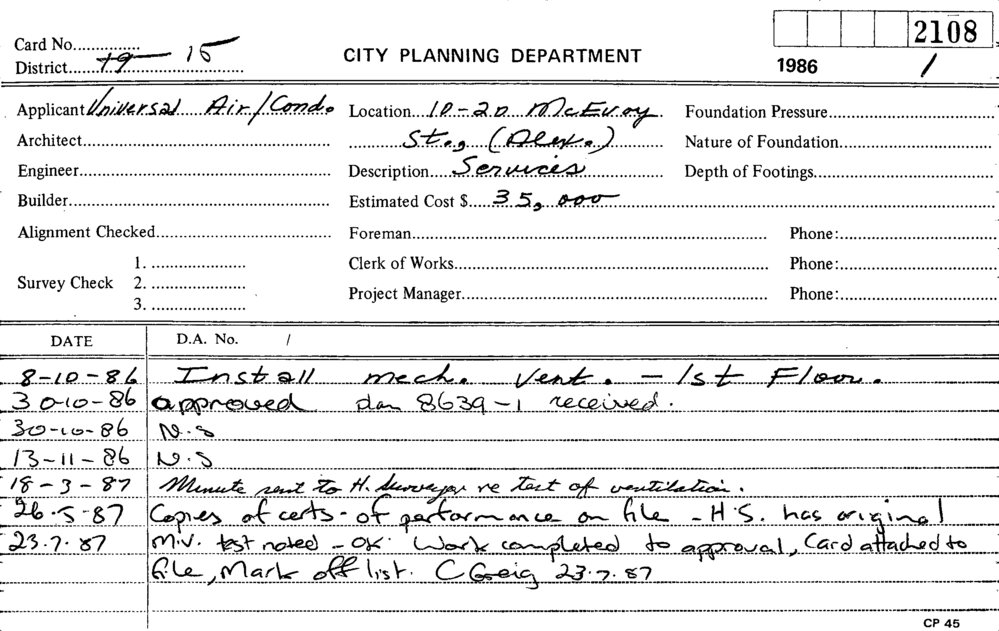 Card No...............
2108
District.....19 - 15
CITY PLANNING DEPARTMENT
1986 /
Applicant Universal Air/Cond.
Location...10-20 McEvoy
Foundation Pressure
Architect
St., (Alex.)
Nature of Foundation
Engineer
Description...Services
Depth of Footings
Builder
Estimated Cost $....35,000
Alignment Checked
Foreman
Phone:
Survey Check
1.
2.
3.
Clerk of Works
Phone:
Project Manager
Phone:
DATE
D.A. No. /
8-10-86 Install mech. vent. - 1st Floor.
30-10-86 approved plan 8639-1 received.
30-10-86 N.S
13-11-86 N.S
18-3-87 Minute sent to H. Surveyor re test of ventilation.
26.5.87 Copies of certs. of performance on file - H.S. has original
23.7.87 M.V. test noted - OK. Work completed to approval, Card attached to
file, Mark off list. C Greig 23.7.87
CP 45